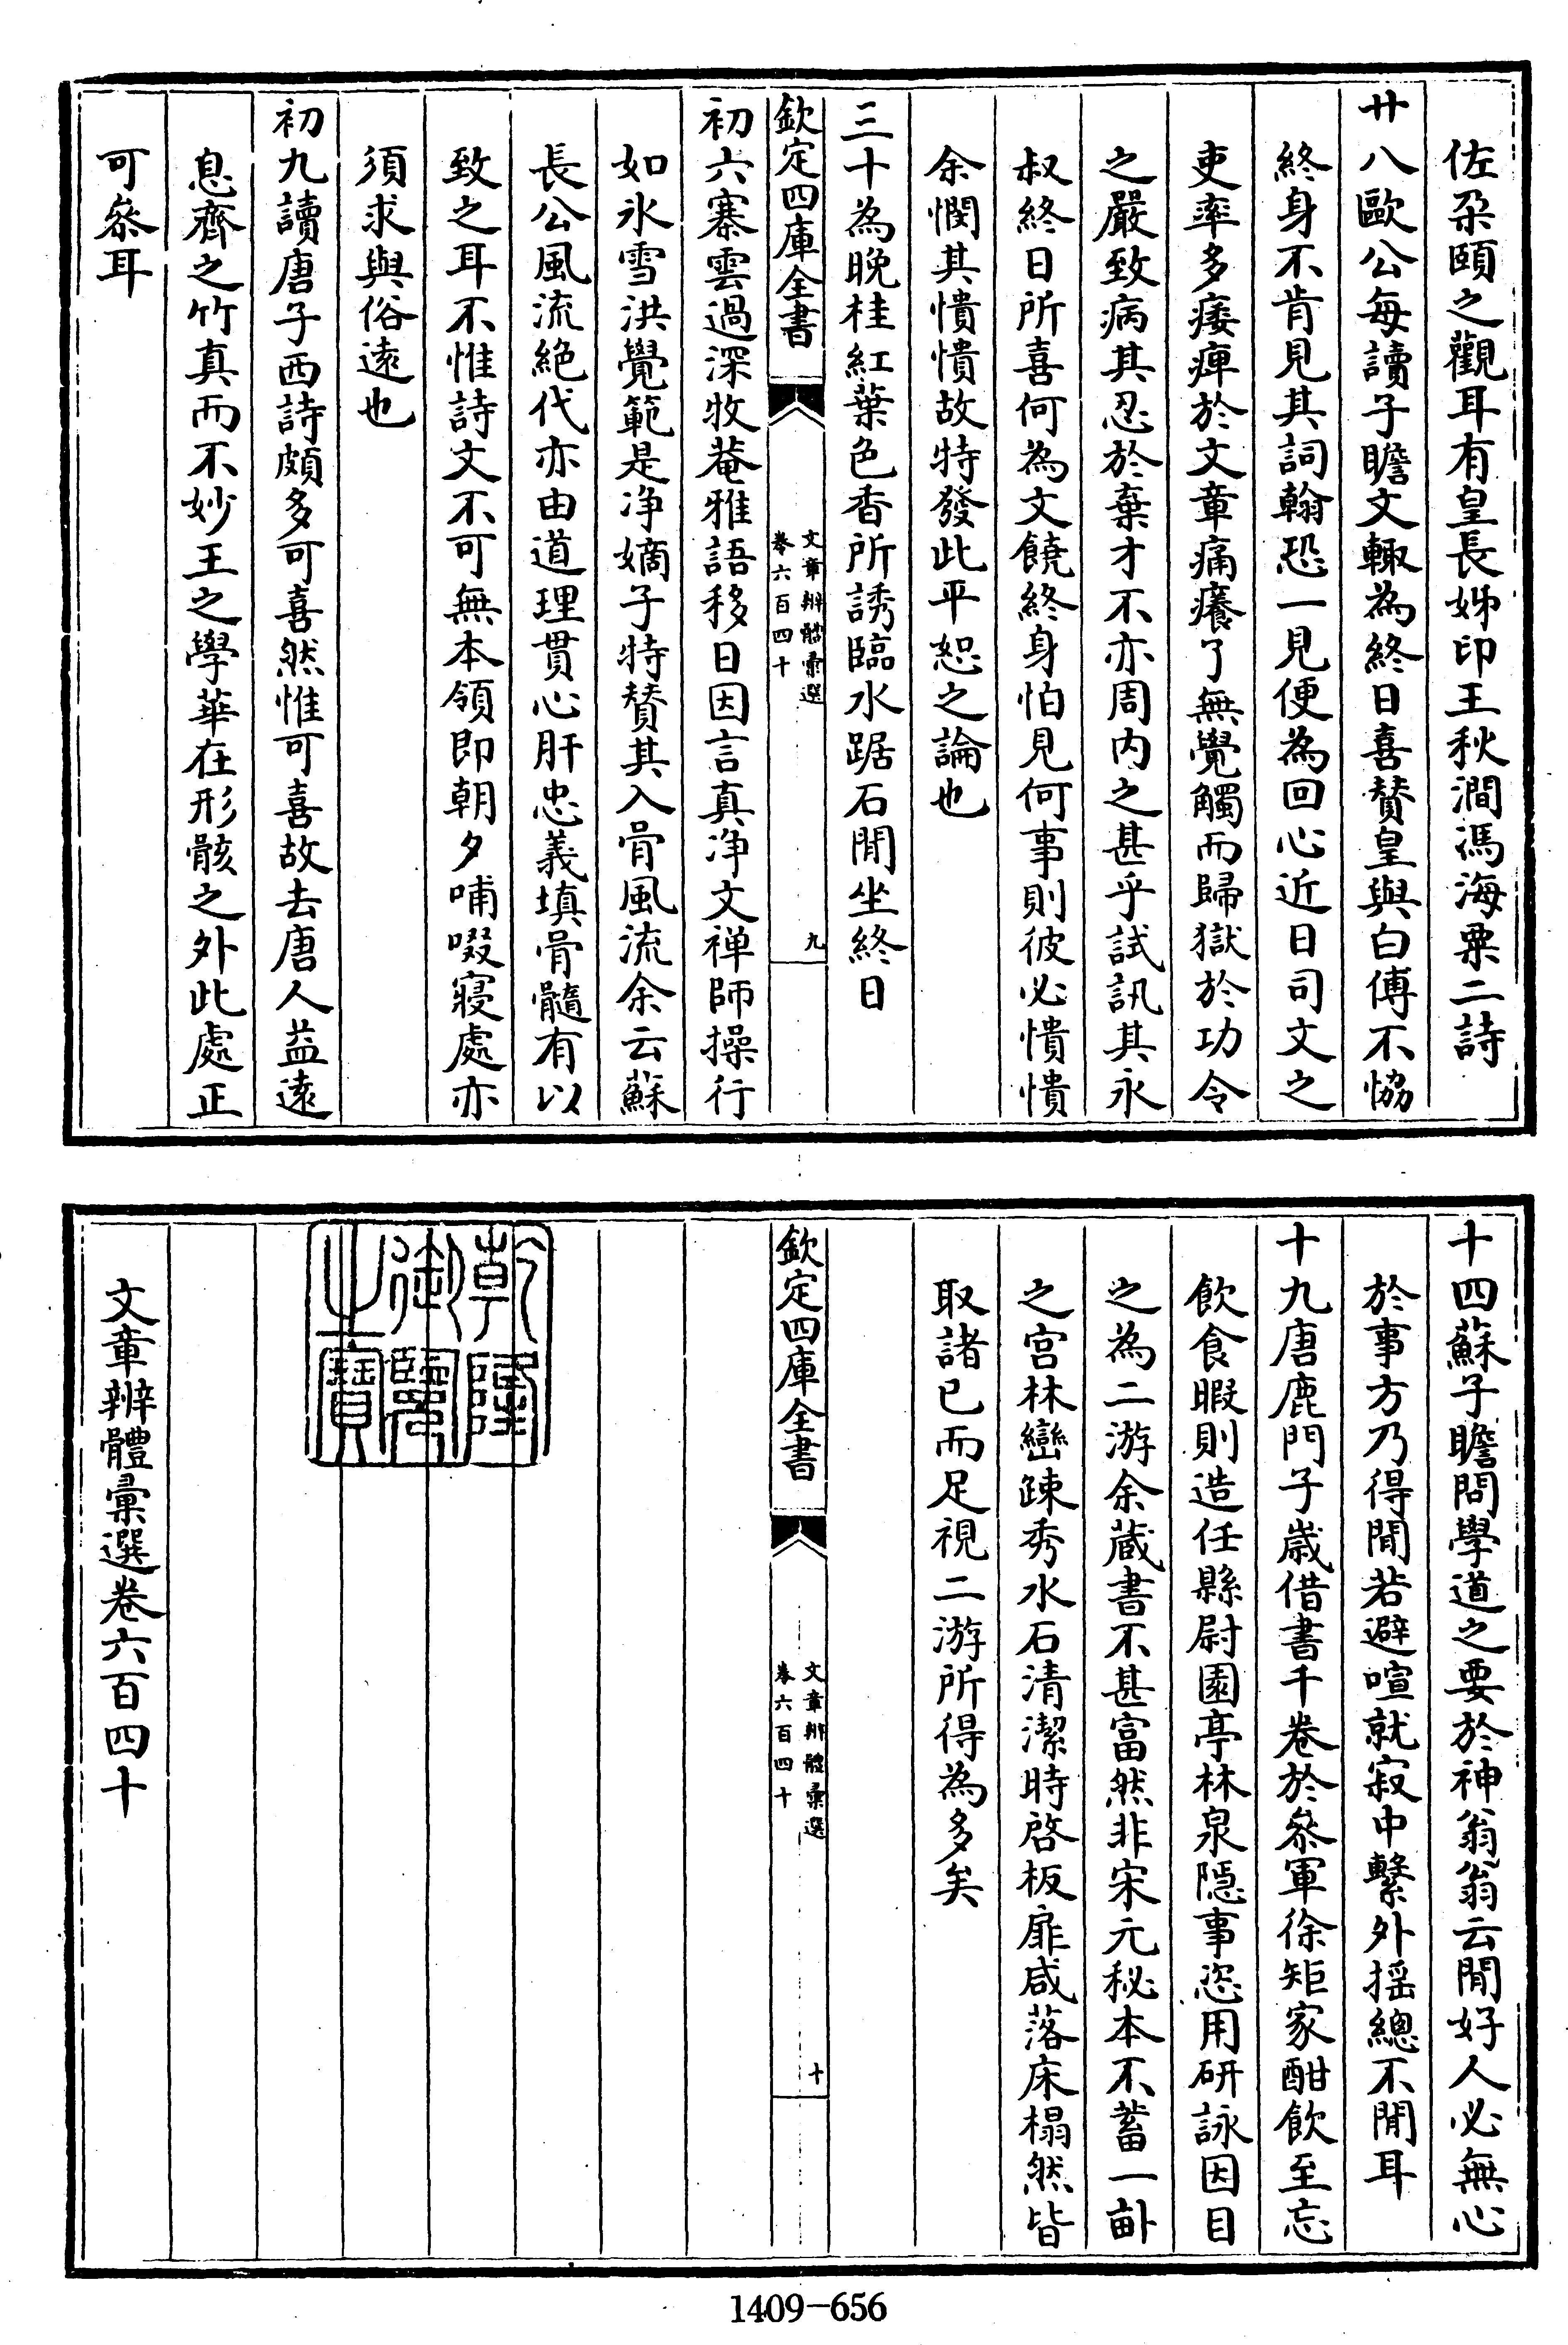 佐朶頤之觀耳有皇長姊印王秋澗馮海粟二詩
廿八歐公每讀子瞻文輙為終日喜賛皇與白傅不恊
終身不肯見其詞翰恐一見便為回心近日司文之
吏率多痿痺於文章痛癢了無覺觸而歸獄於功令
之嚴致病其忍於棄才不亦周内之甚乎試訊其永
叔終日所喜何為文饒終身怕見何事則彼必憒憒
余憫其憒憒故特發此平恕之論也
三十為晚桂紅葉色香所誘臨水踞石閒坐終日
欽定四庫全書
文章辨體彙選
卷六百四十
九
初六寨雲過深牧菴雅語移日因言真净文禅師操行
如氷雪洪覺範是净嫡子特賛其入骨風流余云蘇
長公風流絶代亦由道理貫心肝忠義填骨髓有以
致之耳不惟詩文不可無本領即朝夕哺啜寢處亦
須求與俗逺也
初九讀唐子西詩頗多可喜然惟可喜故去唐人益逺
息齊之竹真而不妙王之學華在形骸之外此處正
可叅耳
十四蘇子瞻問學道之要於神翁翁云閒好人必無心
於事方乃得閒若避喧就寂中繫外揺總不閒耳
十九唐鹿門子嵗借書千卷於叅軍徐矩家酣飲至忘
飲食暇則造任縣尉園亭林泉隱事恣用研詠因目
之為二游余蔵書不甚富然非宋元秘本不蓄一畝
之宫林巒踈秀水石清潔時啓板扉咸落床榻然皆
取諸已而足視二游所得為多矣
欽定四庫全書
文章辨體彙選
卷六百四十
十
乾隆
御覽
之寶
文章辨體彙選卷六百四十
1409-656